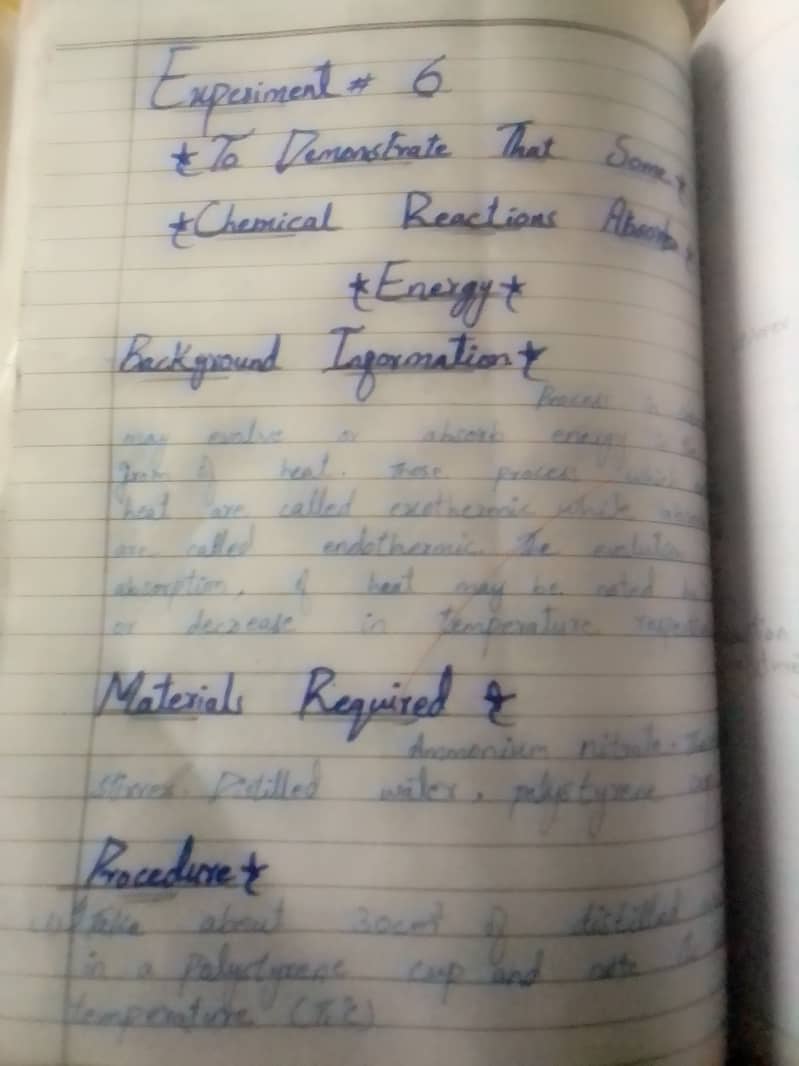 Experiment # 6
To Demonstrate That Some
Chemical Reactions Absorbs
Energy
Background Information
Process in
may evolve or absorb energy in the
form of heat. These process which
heat are called exothermic while
are called endothermic. The evolution
absorption, of heat may be noted by
or decrease in temperature
Materials Required
Ammonium nitrate,
stirrer. Distilled water, polystyrene cup
Procedure
Take about 30cm³ of distilled
in a Polystyrene cup and note
temperature